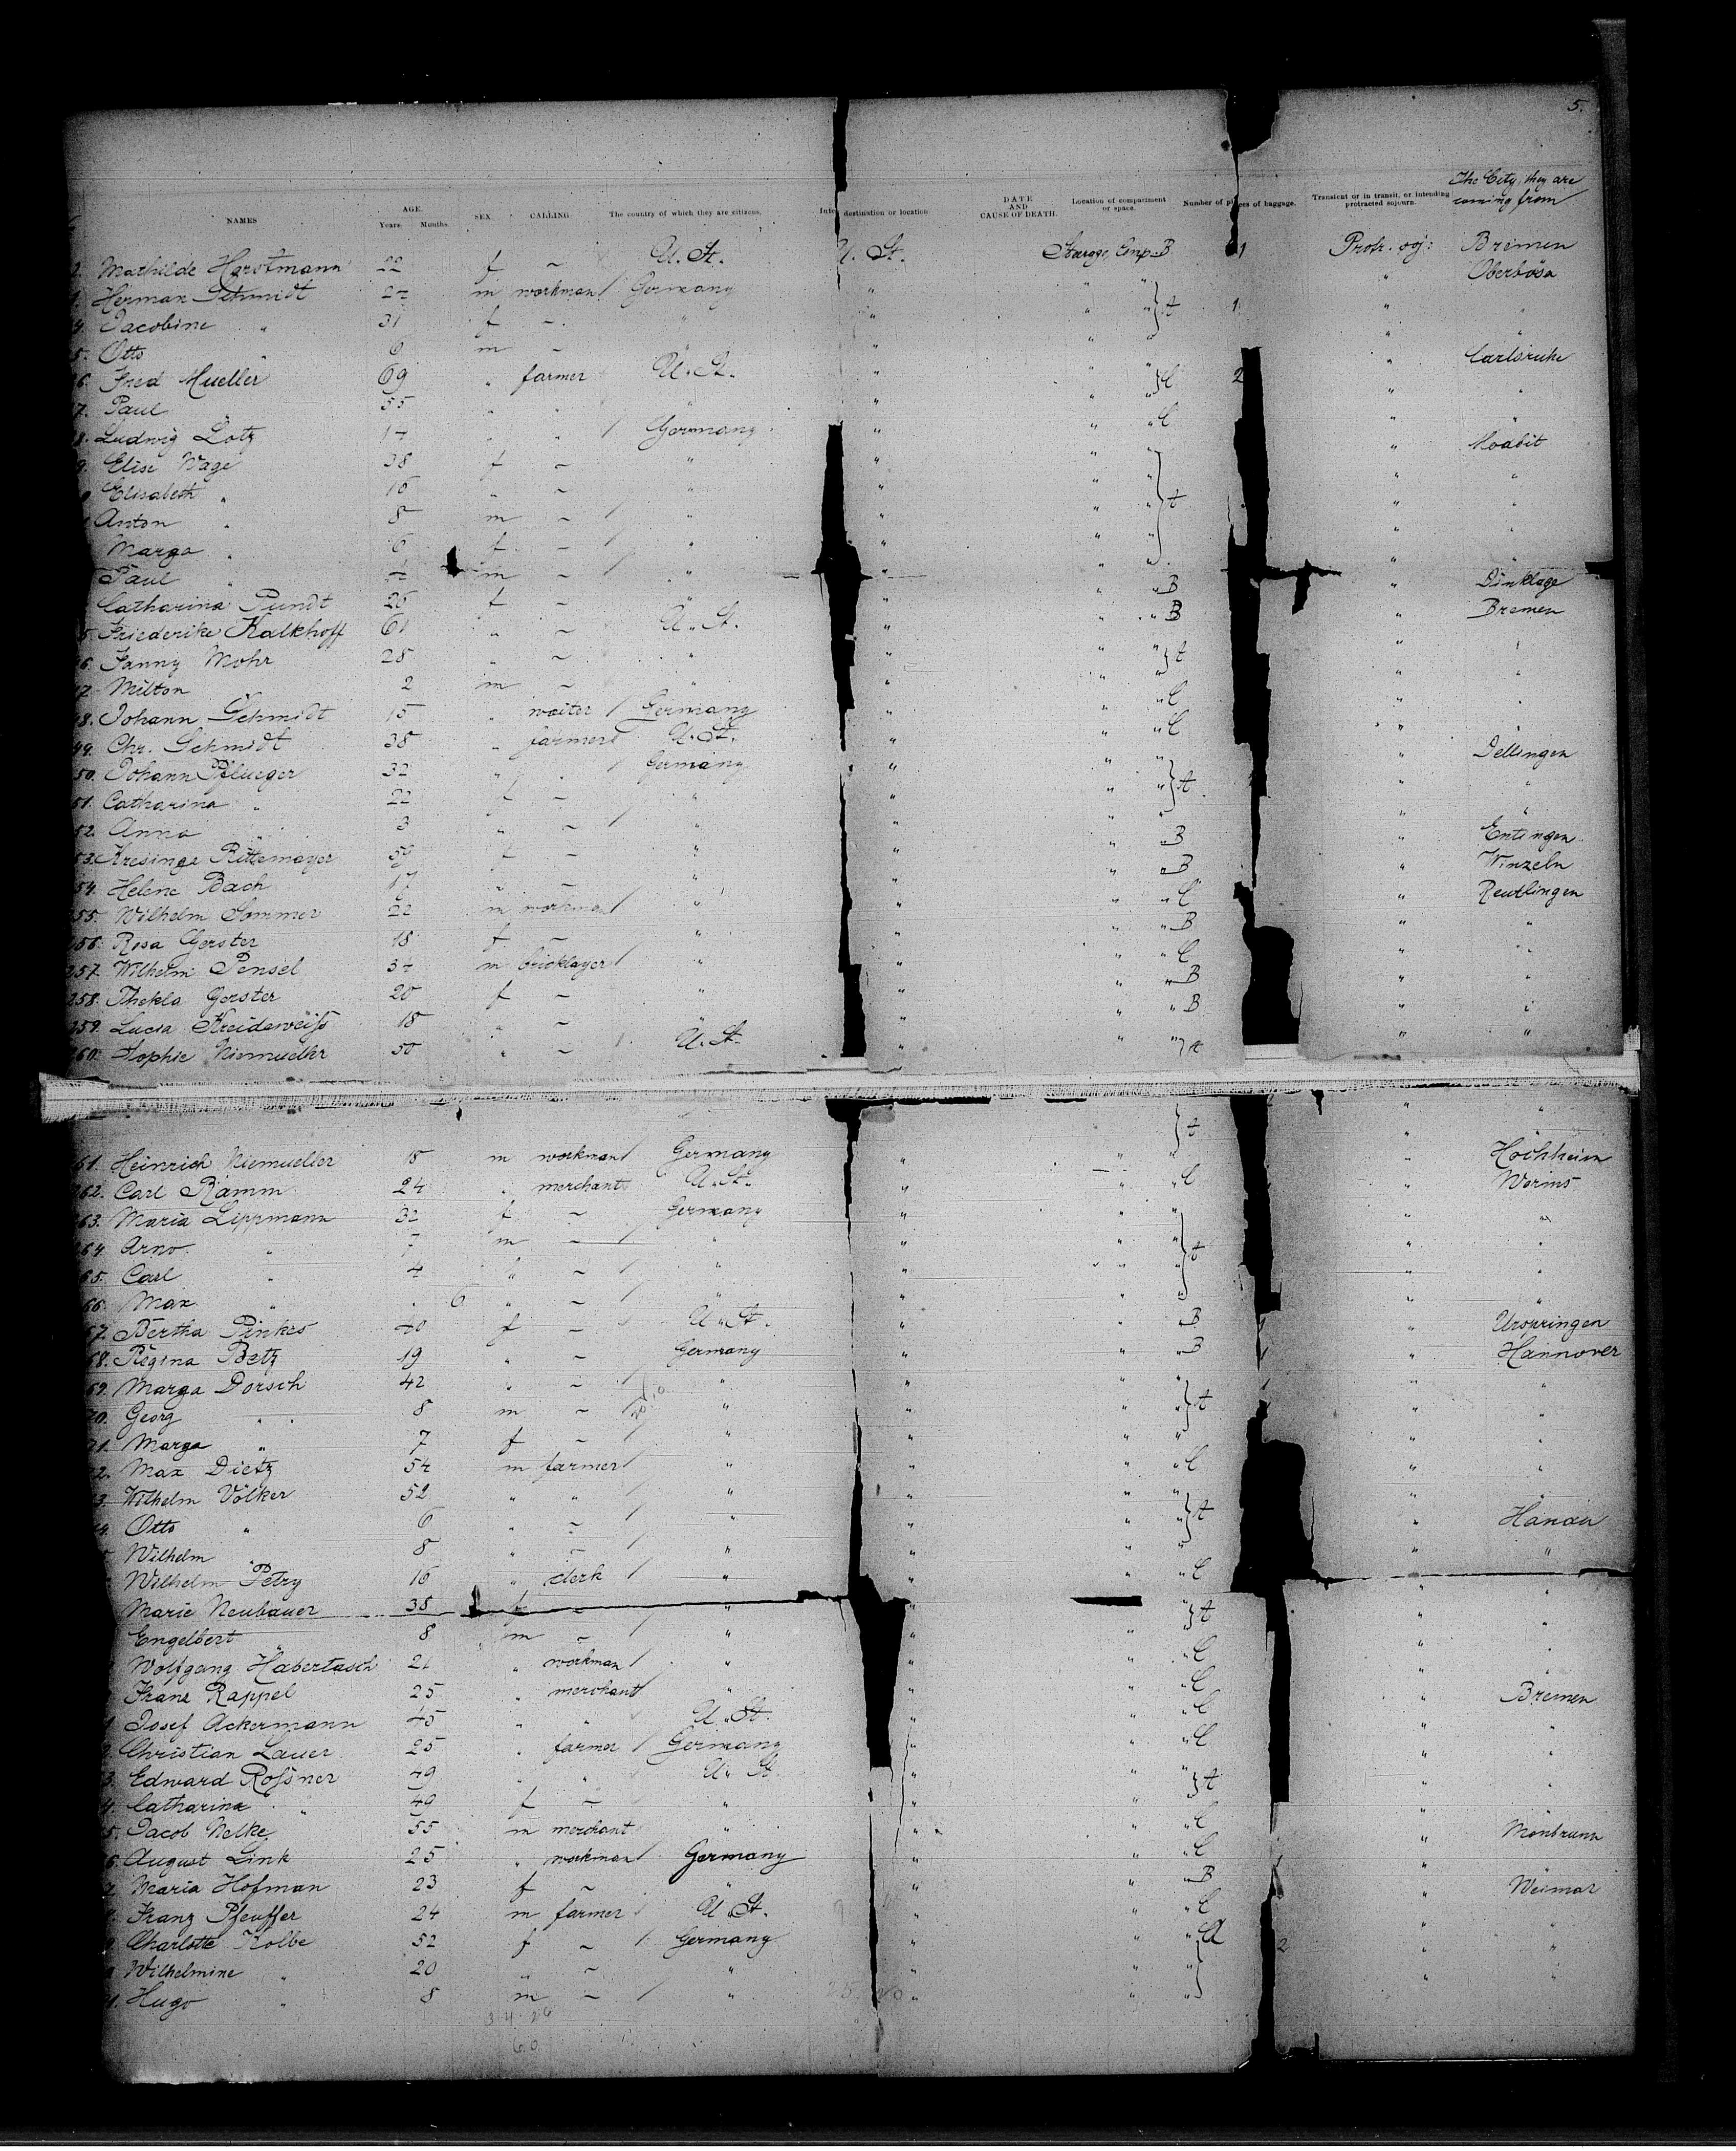 5.
The City they are coming from
NAMES AGE Years. Months. SEX CALLING The country of which they are citizens. destination or location DATE AND CAUSE OF DEATH. Location of compartment or space. Number of pieces of baggage. Transient or in transit, or intending protracted sojourn.
Mathilde Horstmann 22 f ~ U. St. U. St. B 1 Bremen
Herman Schmidt m workman Germany " " " "
4. Jacobine " 31 f ~ " " " " A 1 " "
5. Otto " 6 m ~ " " " "
6. Fred Mueller 69 " farmer U. St. " " " C 2 " Carlsruhe
7. Paul 55 " " " " " " "
8. Ludwig Lotz " " Germany " " " C " "
9. Elise Wage 38 f ~ " " " " " Moabit
Elisabeth " " ~ " " " " A " "
Anton " 8 m ~ " " " " " "
Marga " 6 f ~ " " " " " "
Paul " m ~ " " " " " "
Catharina Pundt 26 f ~ " " " B " Dinklage
5. Friederike Kalkhoff 61 " ~ U. St. " " B " Bremen
6. Fanny Mohr 28 " ~ " " " " A " "
Milton 2 m ~ " " " " " "
8. Johann Schmidt 15 " waiter Germany " " C " "
49. Chr. Schmidt 38 " farmer U. St. " " C " "
50. Johann Pflueger 32 " " Germany " " " " Dellingen
51. Catharina " 22 f ~ " " " " A " "
52. Anna 3 " ~ " " " " " "
53. Kresinge Rittemayer f ~ " " " B " Entingen
54. Helene Bach 17 " ~ " " " B " Winzeln
55. Wilhelm Sommer 22 m workman " " " C " Reutlingen
256. Rosa Gerster 18 f ~ " " " B " "
257. Wilhelm Pensel m bricklayer " " " C " "
258. Thekla Gerster 20 f ~ " " " B " "
259. Lucia Kreideweiß 18 " ~ " " " B " "
260. Sophie Niemueller 50 " ~ U. St. " " " A " "
61. Heinrich Niemueller 18 m workman Germany " " " A " "
262. Carl Ramm 24 " merchant U. St. " " C " Hochheim
263. Maria Lippmann 32 f ~ Germany " " " " Worms
264. Arno " 7 m ~ " " " " A " "
65. Carl " 4 " ~ " " " " " "
66. Max " 6 " ~ " " " " " "
67. Bertha Pinkes 40 f ~ U. St. " " B " Urspringen
68. Regina Betz 19 " ~ Germany " " B " Hannover
69. Marga Dorsch 42 " ~ " " " " " "
70. Georg " 8 m ~ " " " " A " "
71. Marga " 7 f ~ " " " " " "
Max Dietz 54 m farmer " " " C " "
Wilhelm Völker 52 " " " " " " " "
Otto " 6 " ~ " " " " A " Hanau
Wilhelm 8 " ~ " " " " " "
Wilhelm Petry 16 " clerk " " " C "
Marie Neubauer 38 f ~ " " " A " "
Engelbert " 8 m ~ " " " " "
Wolfgang Habertasch 21 " workman " " " C " "
Franz Rappel 25 " merchant " " " C " Bremen
Josef Ackermann 45 " " U. St. " " C " "
Christian Lauer 25 " farmer Germany " " C " "
Edward Roßner 49 " " U. St. " " " A
Catharina " 49 f ~ " " " "
Jacob Nelke 55 m merchant " " " C " Mönbrunn
August Link 25 " workman Germany " " C "
Maria Hofman 23 f ~ " " " B " Weimar
Franz Pfeuffer 24 m farmer U. St. " " C " "
Charlotte Kolbe 52 f ~ Germany " " A 2 " "
Wilhelmine " 20 " ~ " " " " " "
Hugo " 8 m ~ " " " "